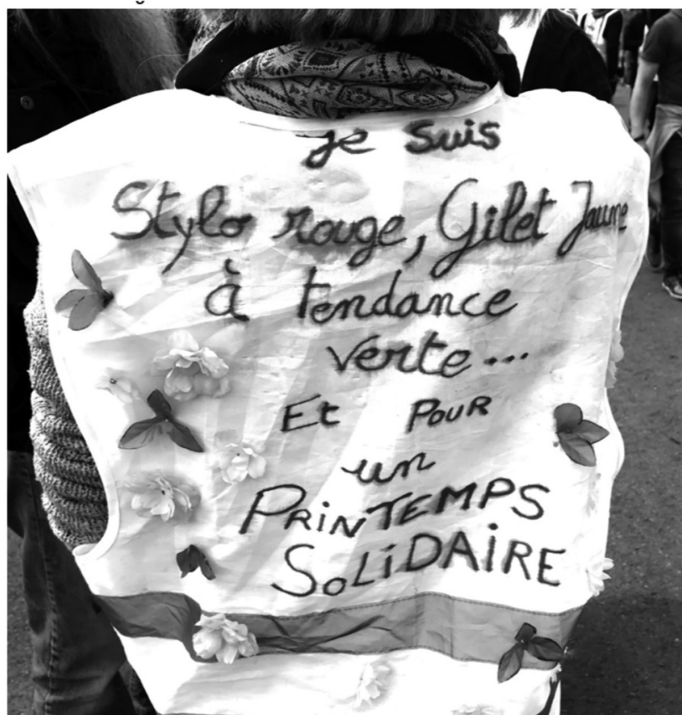 Je suis
Stylo rouge, Gilet Jaune
à tendance
verte...
Et POUR
un
PRiNTEMPS
SoLiDAiRE